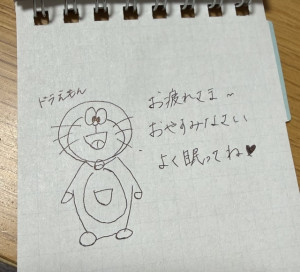 ドラえもん
お疲れさま〜
おやすみなさい
よく眠ってね♥